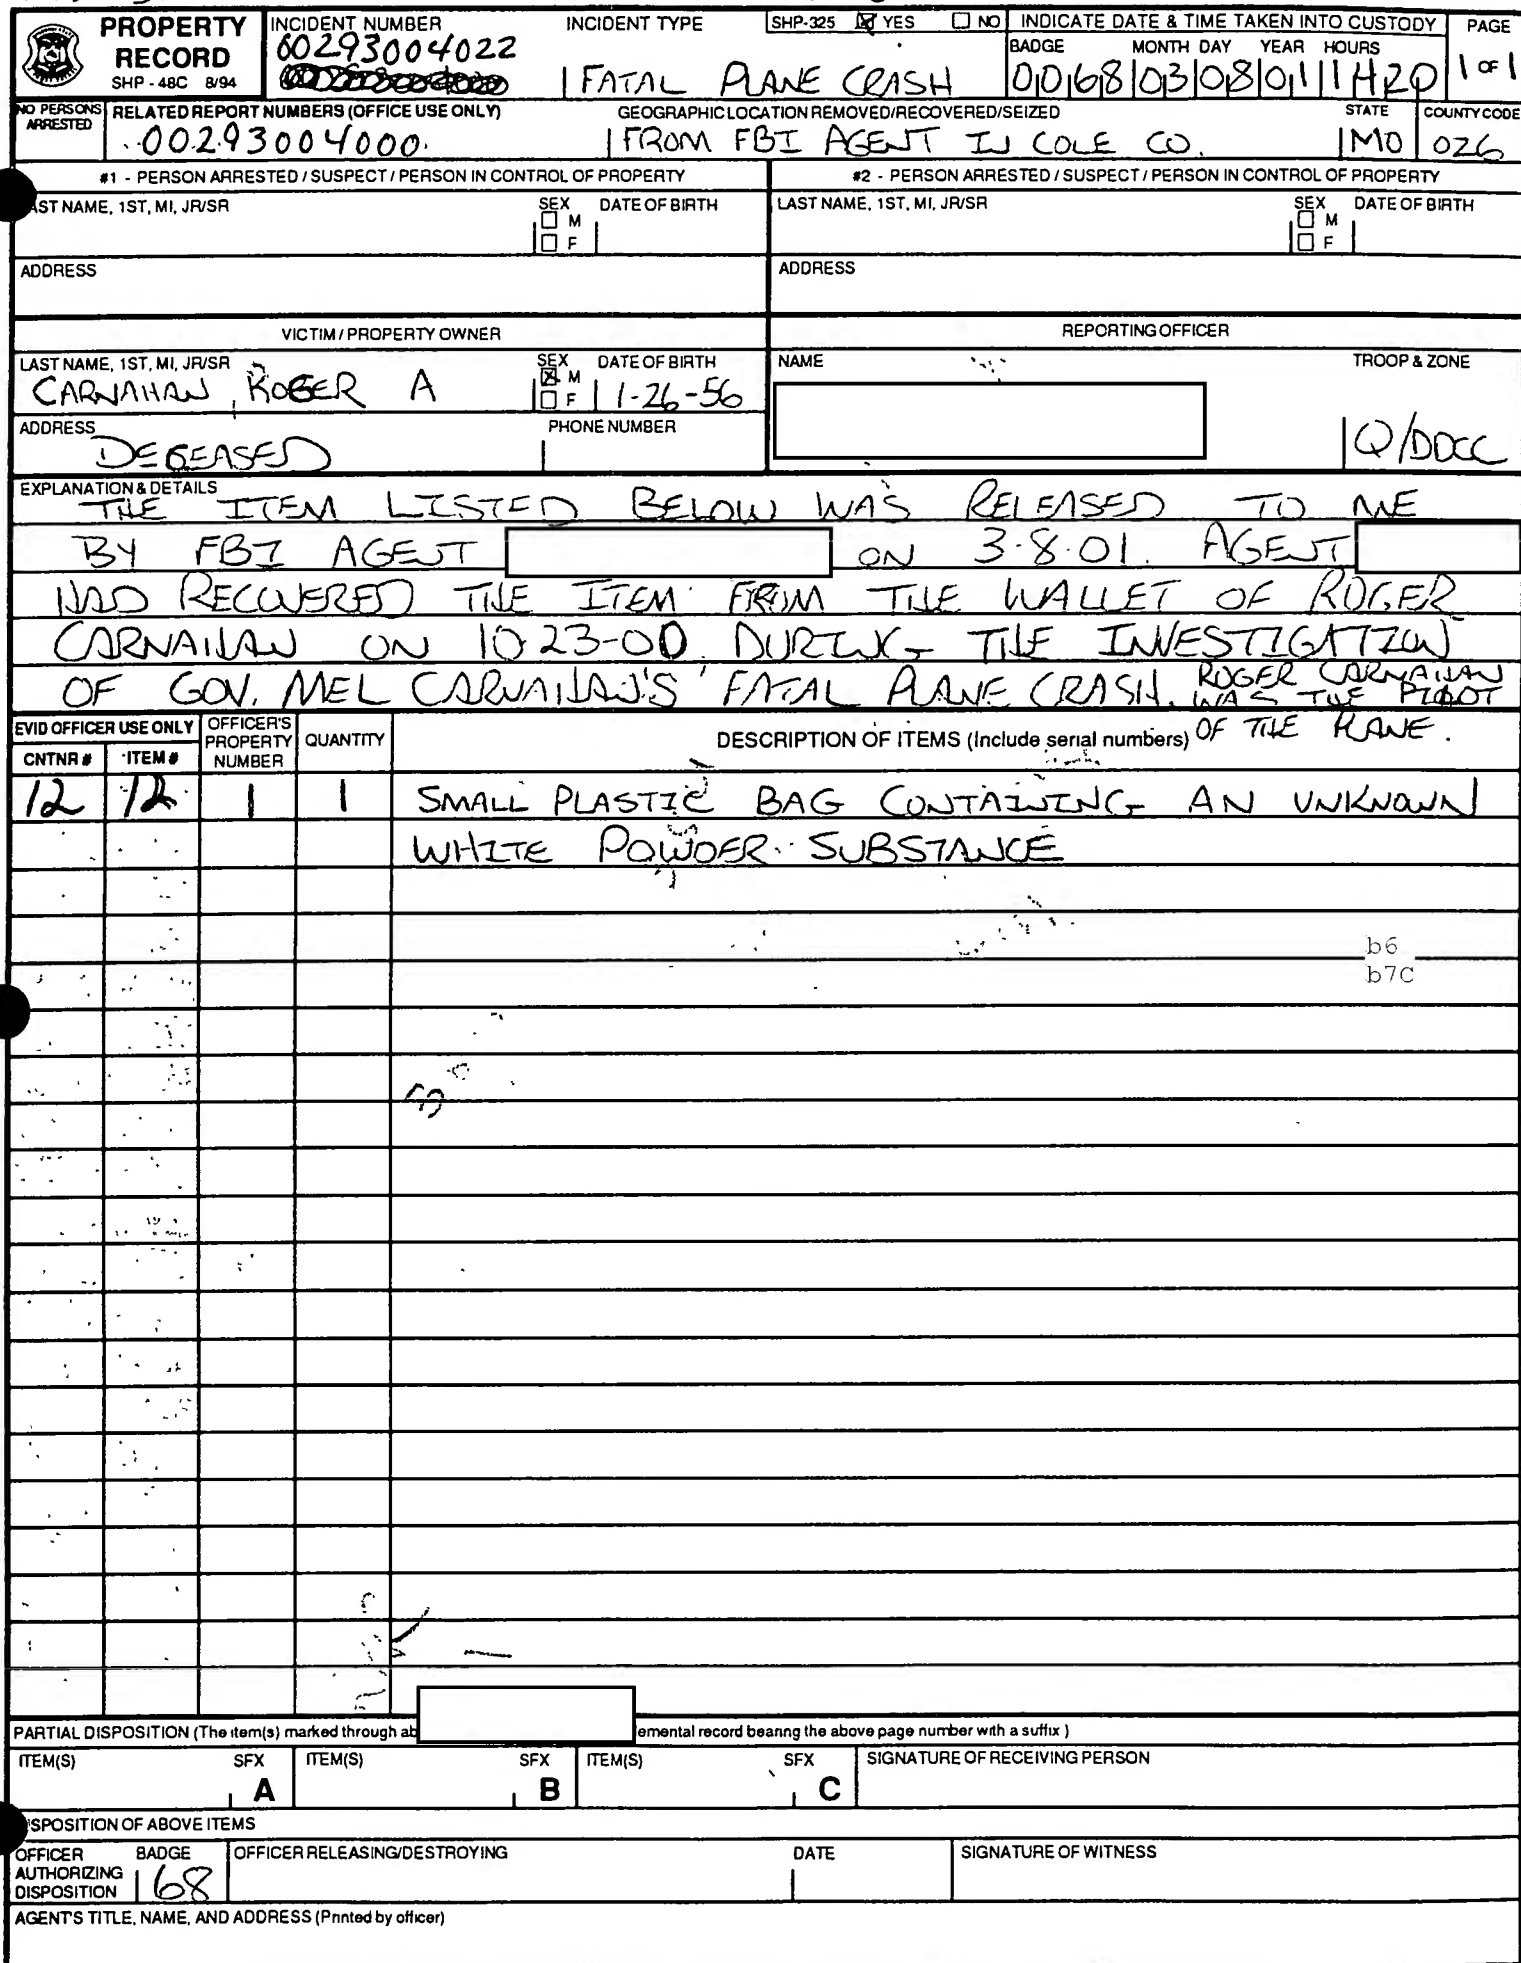 PROPERTY RECORD
SHP - 48C 8/94
INCIDENT NUMBER
00293004022
INCIDENT TYPE
FATAL PLANE CRASH
SHP-325 ☒ YES ☐ NO
INDICATE DATE & TIME TAKEN INTO CUSTODY
BADGE MONTH DAY YEAR HOURS
0068 03 08 01
PAGE
1 OF 1
NO PERSONS ARRESTED
RELATED REPORT NUMBERS (OFFICE USE ONLY)
00293004000
GEOGRAPHIC LOCATION REMOVED/RECOVERED/SEIZED
FROM FBI AGENT IN COLE CO.
STATE
MO
COUNTY CODE
026
#1 - PERSON ARRESTED / SUSPECT / PERSON IN CONTROL OF PROPERTY
#2 - PERSON ARRESTED / SUSPECT / PERSON IN CONTROL OF PROPERTY
AST NAME, 1ST, MI, JR/SR SEX ☐ M ☐ F DATE OF BIRTH
LAST NAME, 1ST, MI, JR/SR SEX ☐ M ☐ F DATE OF BIRTH
ADDRESS
ADDRESS
VICTIM / PROPERTY OWNER
REPORTING OFFICER
LAST NAME, 1ST, MI, JR/SR SEX ☒ M ☐ F DATE OF BIRTH
CARNAHAN, ROGER A 1-26-56
NAME TROOP & ZONE
Q/DDCC
ADDRESS PHONE NUMBER
DECEASED
EXPLANATION & DETAILS
THE ITEM LISTED BELOW WAS RELEASED TO ME
BY FBI AGENT ON 3-8-01. AGENT
HAD RECOVERED THE ITEM FROM THE WALLET OF ROGER
CARNAHAN ON 10-23-00 DURING THE INVESTIGATION
OF GOV. MEL CARNAHAN'S FATAL PLANE CRASH. ROGER CARNAHAN WAS THE PILOT
OF THE PLANE.
EVID OFFICER USE ONLY
CNTNR # ITEM #
OFFICER'S PROPERTY NUMBER
QUANTITY
DESCRIPTION OF ITEMS (Include serial numbers)
12 12 1 1 SMALL PLASTIC BAG CONTAINING AN UNKNOWN
WHITE POWDER SUBSTANCE
b6
b7C
PARTIAL DISPOSITION (The item(s) marked through ab emental record bearing the above page number with a suffix )
ITEM(S) SFX A ITEM(S) SFX B ITEM(S) SFX C SIGNATURE OF RECEIVING PERSON
SPOSITION OF ABOVE ITEMS
OFFICER AUTHORIZING DISPOSITION BADGE 68 OFFICER RELEASING/DESTROYING DATE SIGNATURE OF WITNESS
AGENT'S TITLE, NAME, AND ADDRESS (Printed by officer)